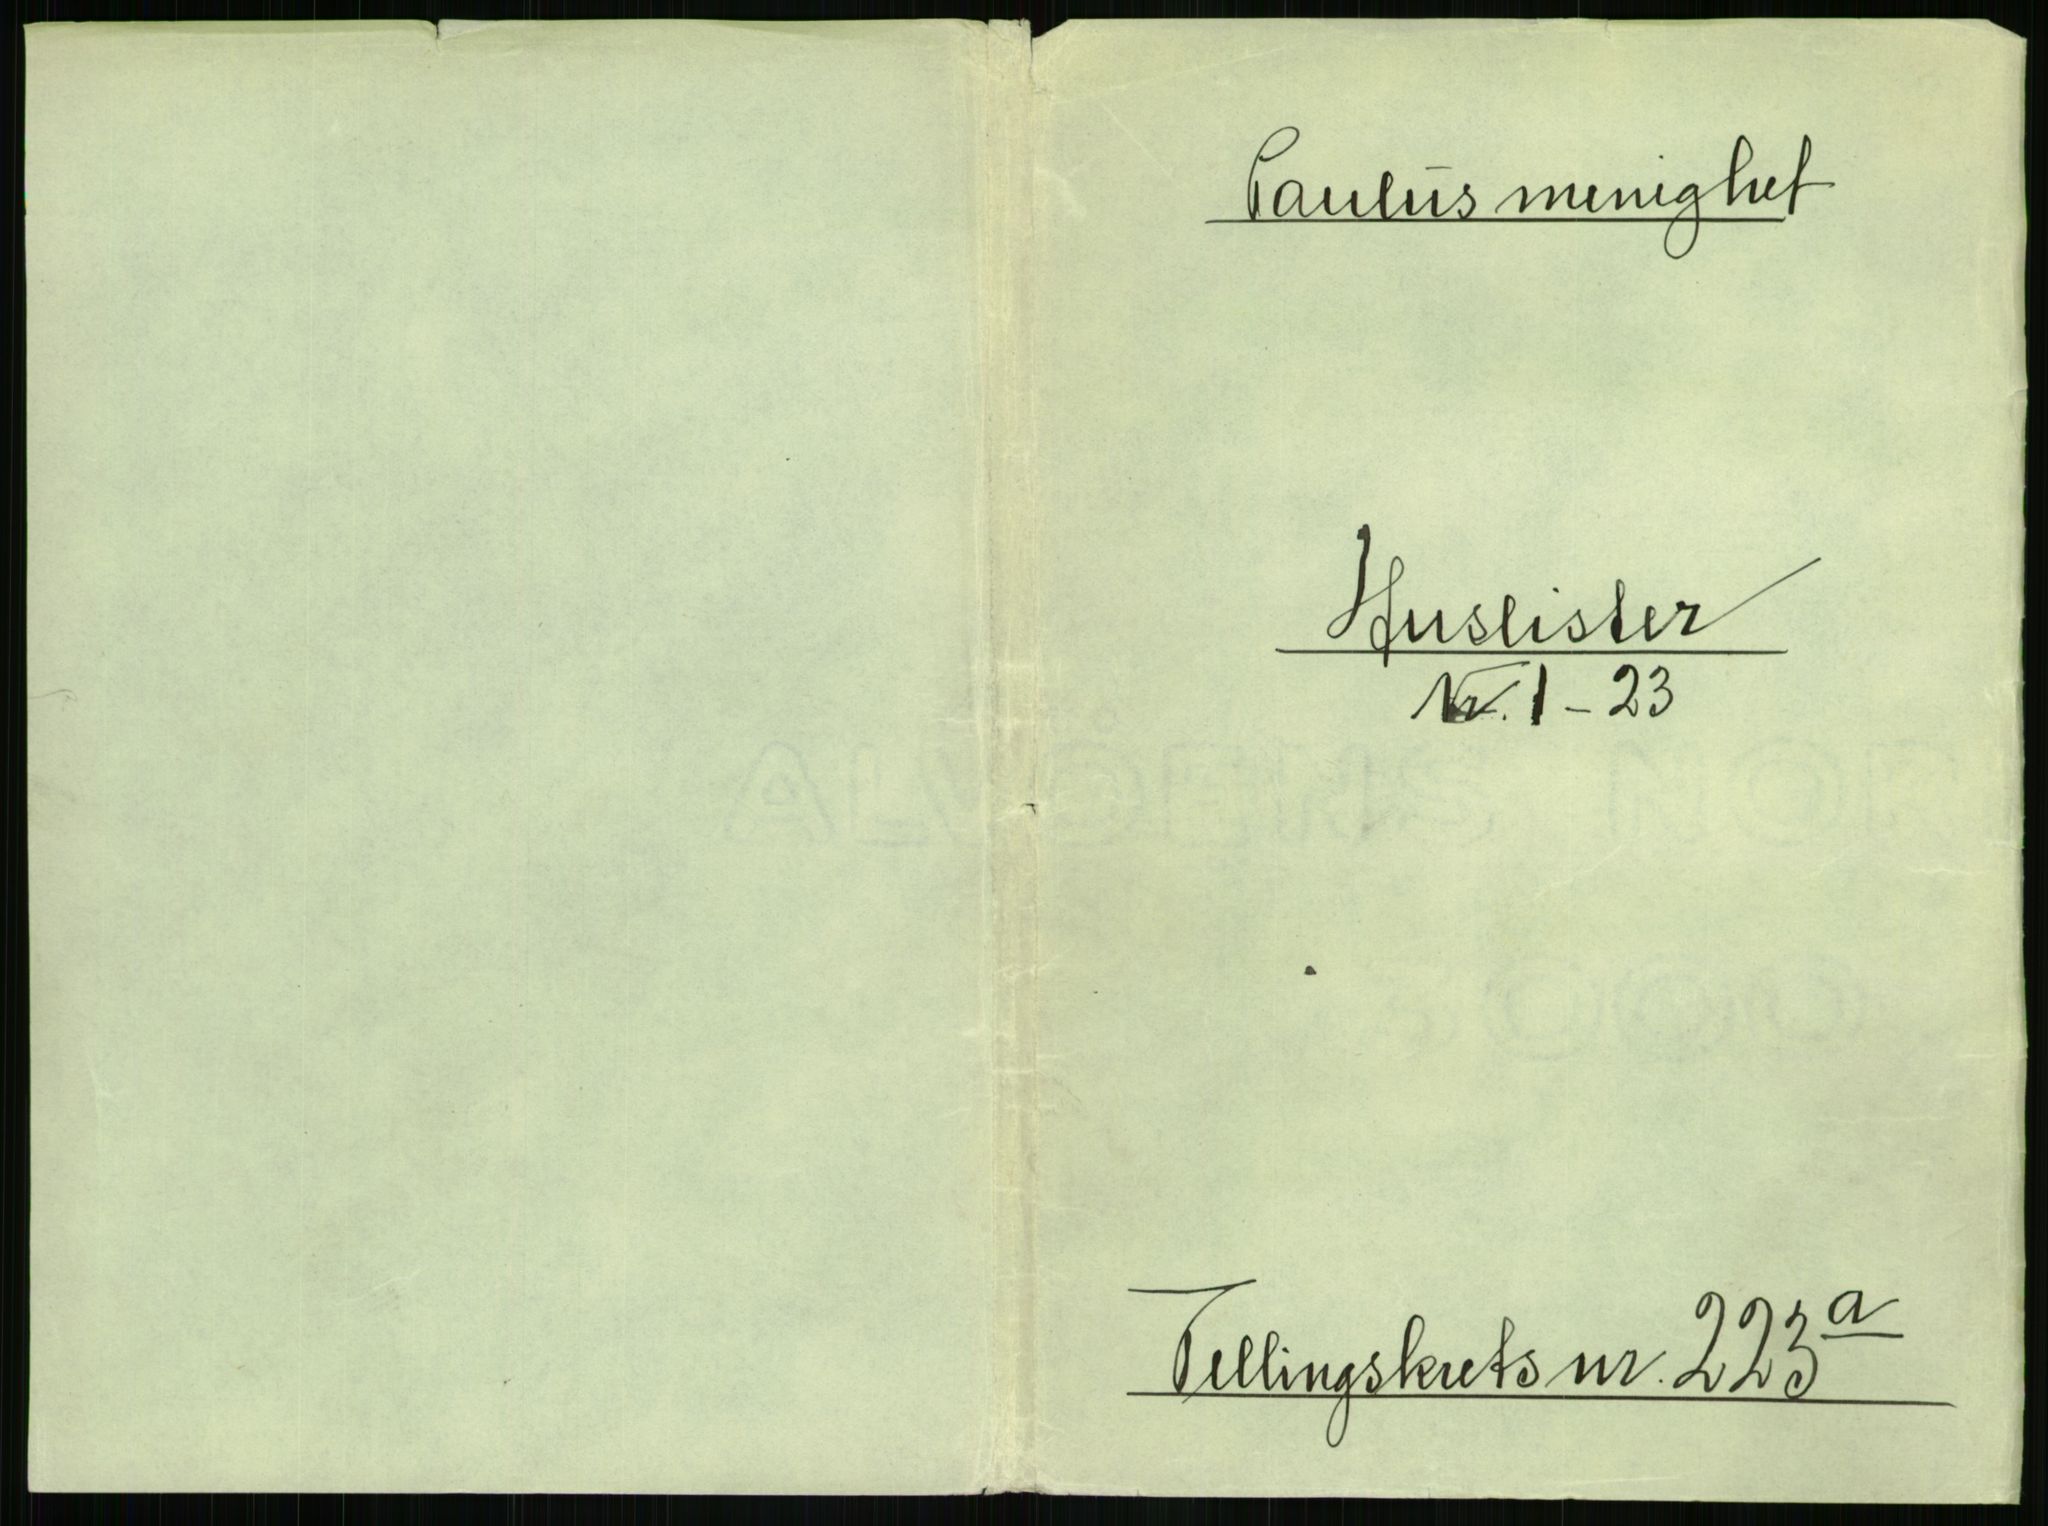 Paulus menighet
Huslister
Nr. 1 - 23
Tellingskrets nr. 223a